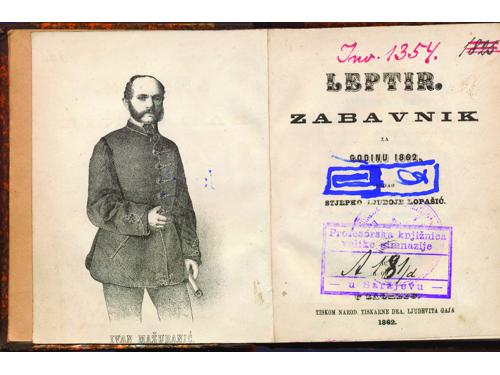 IVAN MAŽURANIĆ
Inv. 1354.
LEPTIR.
ZABAVNIK
ZA
GODINU 1862.
STJEPKO LJUDOJE LOPAŠIĆ.
Profesorska knjižnica
velike gimnazije
u Sarajevu
TISKOM NAROD. TISKARNE DRA. LJUDEVITA GAJA
1862.